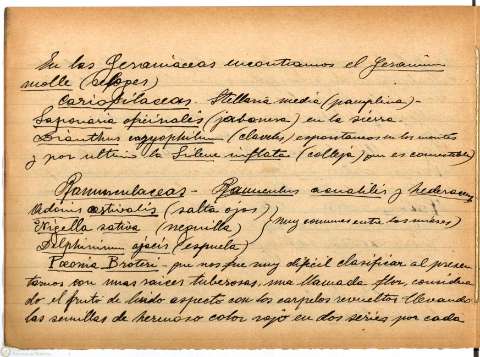 En las Geraniaceas encontramos el Geranium
molle (relojes)
Cariofilaceas - Stellaria media (pamplina) -
Saponaria oficinalis (jabonera) en la sierra.
Dianthus caryophilum (claveles) espontaneos en los montes
y por ultimo la Silene inflata (colleja) que es comestible)
Ranunculaceas - Ranunculus acuatilis y hederaceus
Adonis aestivalis (salta ojos)
Nigella sativa (neguilla) } muy comunes entre las mieses)
Delphinium ajacis (espuela)
Pæonia Broteri - que nos fue muy dificil clasificar al presen-
tarnos con unas raices tuberosas, una llamada flor, considera
do el fruto de lindo aspecto con los carpelos revueltos llevando
las semillas de hermoso color rojo en dos series por cada